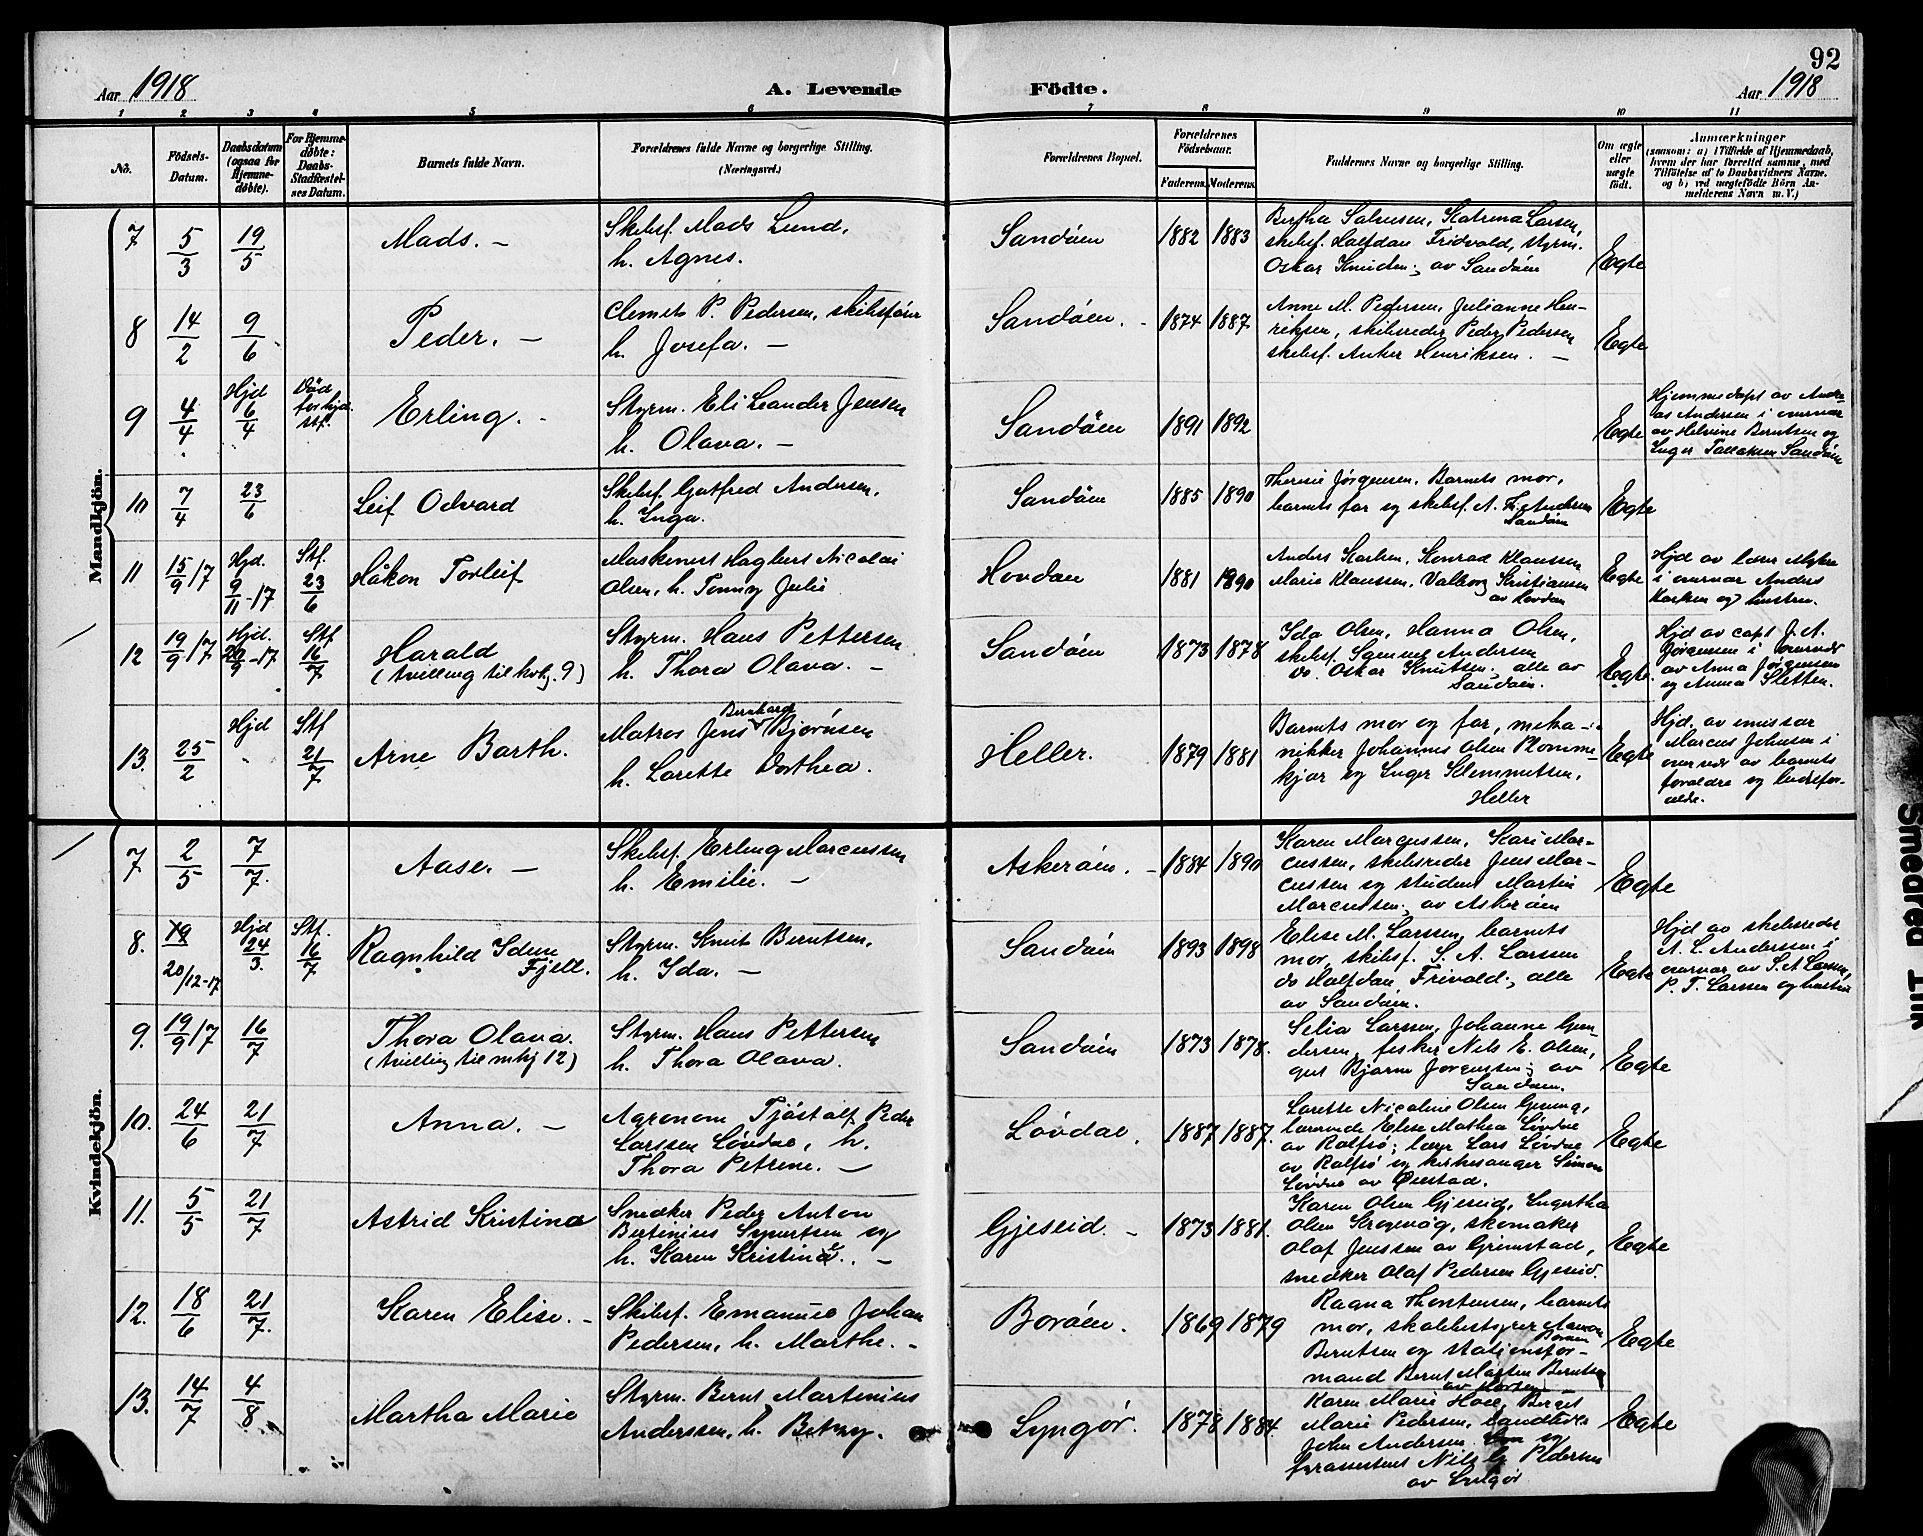 92
Aar 1918
A. Levende
Födte.
Aar 1918
1 2 3 4 5 6 7 8 9 10 11
No.
Födsels-
Datum.
Daabsdatum
(ogsaa for
Hjemme-
döbte).
For Hjemme-
döbte:
Daabs-
Stadfæstel-
ses Datum.
Barnets fulde Navn.
Forældrenes fulde Navne og borgerlige Stilling.
(Næringsvei.)
Forældrenes Bopæl.
Forældrenes
Födselsaar.
Faderens. Moderens.
Faddernes Navne og borgerlige Stilling.
Om ægte
eller
uægte
födt.
Anmærkninger
(saasom: a) i Tilfælde af Hjemmedaab,
hvem der har forrettet samme, med
Tilföielse af to Daabsvidners Navne.
og b) ved uægtefödte Börn An-
melderens Navn m. V.)
Mandkjön.
7
5/3
19/5
Mads. —
Skibsf. Mads Lund,
h. Agnes.
Sandøen
1882 1883
Bertha Salvesen, Katrina Larsen,
skibsf. Halfdan Fridvald, styrm.
Oskar Knudsen; av Sandøen
Egte
8
14/2
9/6
Peder. —
Clemets P. Pedersen, skibsfører
h. Josefa. —
Sandøen.
1874 1887
Anne M. Pedersen, Julianne Hen-
riksen, skibsreder Peder Pedersen
skibsf. Anker Henriksen. —
Egte
9
4/4
Hjd
6/4
Død
før hjd.
stf.
Erling. -
Styrm. Eli Leander Jensen
h. Olava. —
Sandøen
1891 1892
Egte
Hjemmedøpt av Andre-
as Andersen i overvær
av Helvine Berntsen og
Inger Tallaksen Sandøen
10
7/4
23/6
Leif Odvard
Skibsf. Gotfred Andersen,
h. Inga.
Sandøen
1885 1890
Therese Jørgensen, Barnets mor,
barnets far og skibsf. A. F. Andersen
Sandøen
Egte
11
15/9 17
Hjd.
9/11-17
Stf.
23/6
Håkon Torleif
Maskinist Hagbert Nicolai
Olsen, h. Tonny Julie
Hovdan
1881 1890
Anders Karlsen, Konrad Klaussen
Marie Klaussen, Valborg Kristiansen
av Hovdan
Egte
Hjd av lærer Myhre
i overvær Anders
Karlsen og hustru.
12
19/9 17
Hjd.
20/9-17
Stf
16/7
Harald
(tvilling til kvkj. 9)
Styrm. Hans Pettersen
h. Thora Olava. —
Sandøen
1873 1878
Ida Olsen, Hanna Olsen,
skibsf. Samuel Andersen
do. Oskar Knutsen. alle av
Sandøen.
Egte.
Hjd av capt J. A.
Jørgensen i overvær
av Anna Jørgensen
og Anna Sletten.
13.
25/2
Hjd
Stf
21/7
Arne Barth.
Bernhard
Matros Jens Bjørnsen
h. Lorette Dorthea.
Heller.
1879 1881
Barnets mor og far, meka-
nikker Johannes Olsen Plomme-
kjær og Inger Klemmetsen,
Heller
Egte
Hjd. av emissær
Marcus Johnsen i
overvær av barnets
forældre og
Kvindekjön.
7
2/5
7/7.
Aase. —
Skibsf. Erling Marcussen
h. Emilie. —
Askerøen. —
1884 1890
Karen Marcussen, Kari Mar-
cussen, skibsreder Jens Mar-
cussen og student Martin
Marcussen; av Askerøen
Egte
8.
19
20/12-17
Hjd
24/3.
Stf.
16/7
Ragnhild Idun
Fjell.
Styrm. Knut Berntsen,
h. Ida. —
Sandøen
1893 1898
Elise M. Larssen, barnets
mor, skibsf. S. A. Larssen
do Halfdan Frivald; alle
av Sandøen.
Egte
Hjd av skibsreder
A. L. Anderssen i
overvær av S. A Larssen,
P. T. Larssen og hustru
9.
19/9 17
16/7
Thora Olava.
(tvilling til mkj 12)
Styrm. Hans Pettersen
h. Thora Olava.
Sandøen
1873 1878.
Selia Larssen, Johanne Gun-
dersen, fisker Nils E. Olsen,
gut Bjarne Jørgenssen; av
Sandøen.
Egte
10.
24/6
21/7
Anna. —
Agronom Tjøstolf Peder
Larssen Løvdal, h.
Thora Petrine. —
Løvdal.
1887 1887.
Lorette Nicoline Olsen
lærerinde Elise Mathea Løvdal
av Rolfsø; lærer Lars Løvdal
av Rolfsø og kirkesanger Simon
Løvdal av Øiestad.
Egte
11.
5/5
21/7
Astrid Kristine
Snekker Peder Anton
Bertinius Syvertsen og
h. Karen Kristine. —
Gjeseid. —
1873 1881.
Karen Olsen Gjeseid, Ingertha
Olsen Krogevåg, skomaker
Olaf Jenssen av Grimstad,
snekker Olaf Pedersen Gjeseid.
Egte
12.
18/6
21/7.
Karen Elise. -
Skibsf. Emanuel Johan
Pedersen, h. Marthe. -
Borøen.
1869 1879
Ragna Thorstensen, barnets
mor, skolebestyrer Aanon
Borøen
Berntsen og stationsfor-
mand Bernt Morten Berntsen
Egte
13.
14/7
4/8
Martha Marie
Styrm. Bernt Martinius
Anderssen, h. Betzy.
Lyngør.
1878 1884
Karen Marie Hove, Birgit
Marie Pedersen, handlende
John Andersen og
Nils G Pedersen
av Lyngør
Egte
Smeared Ink